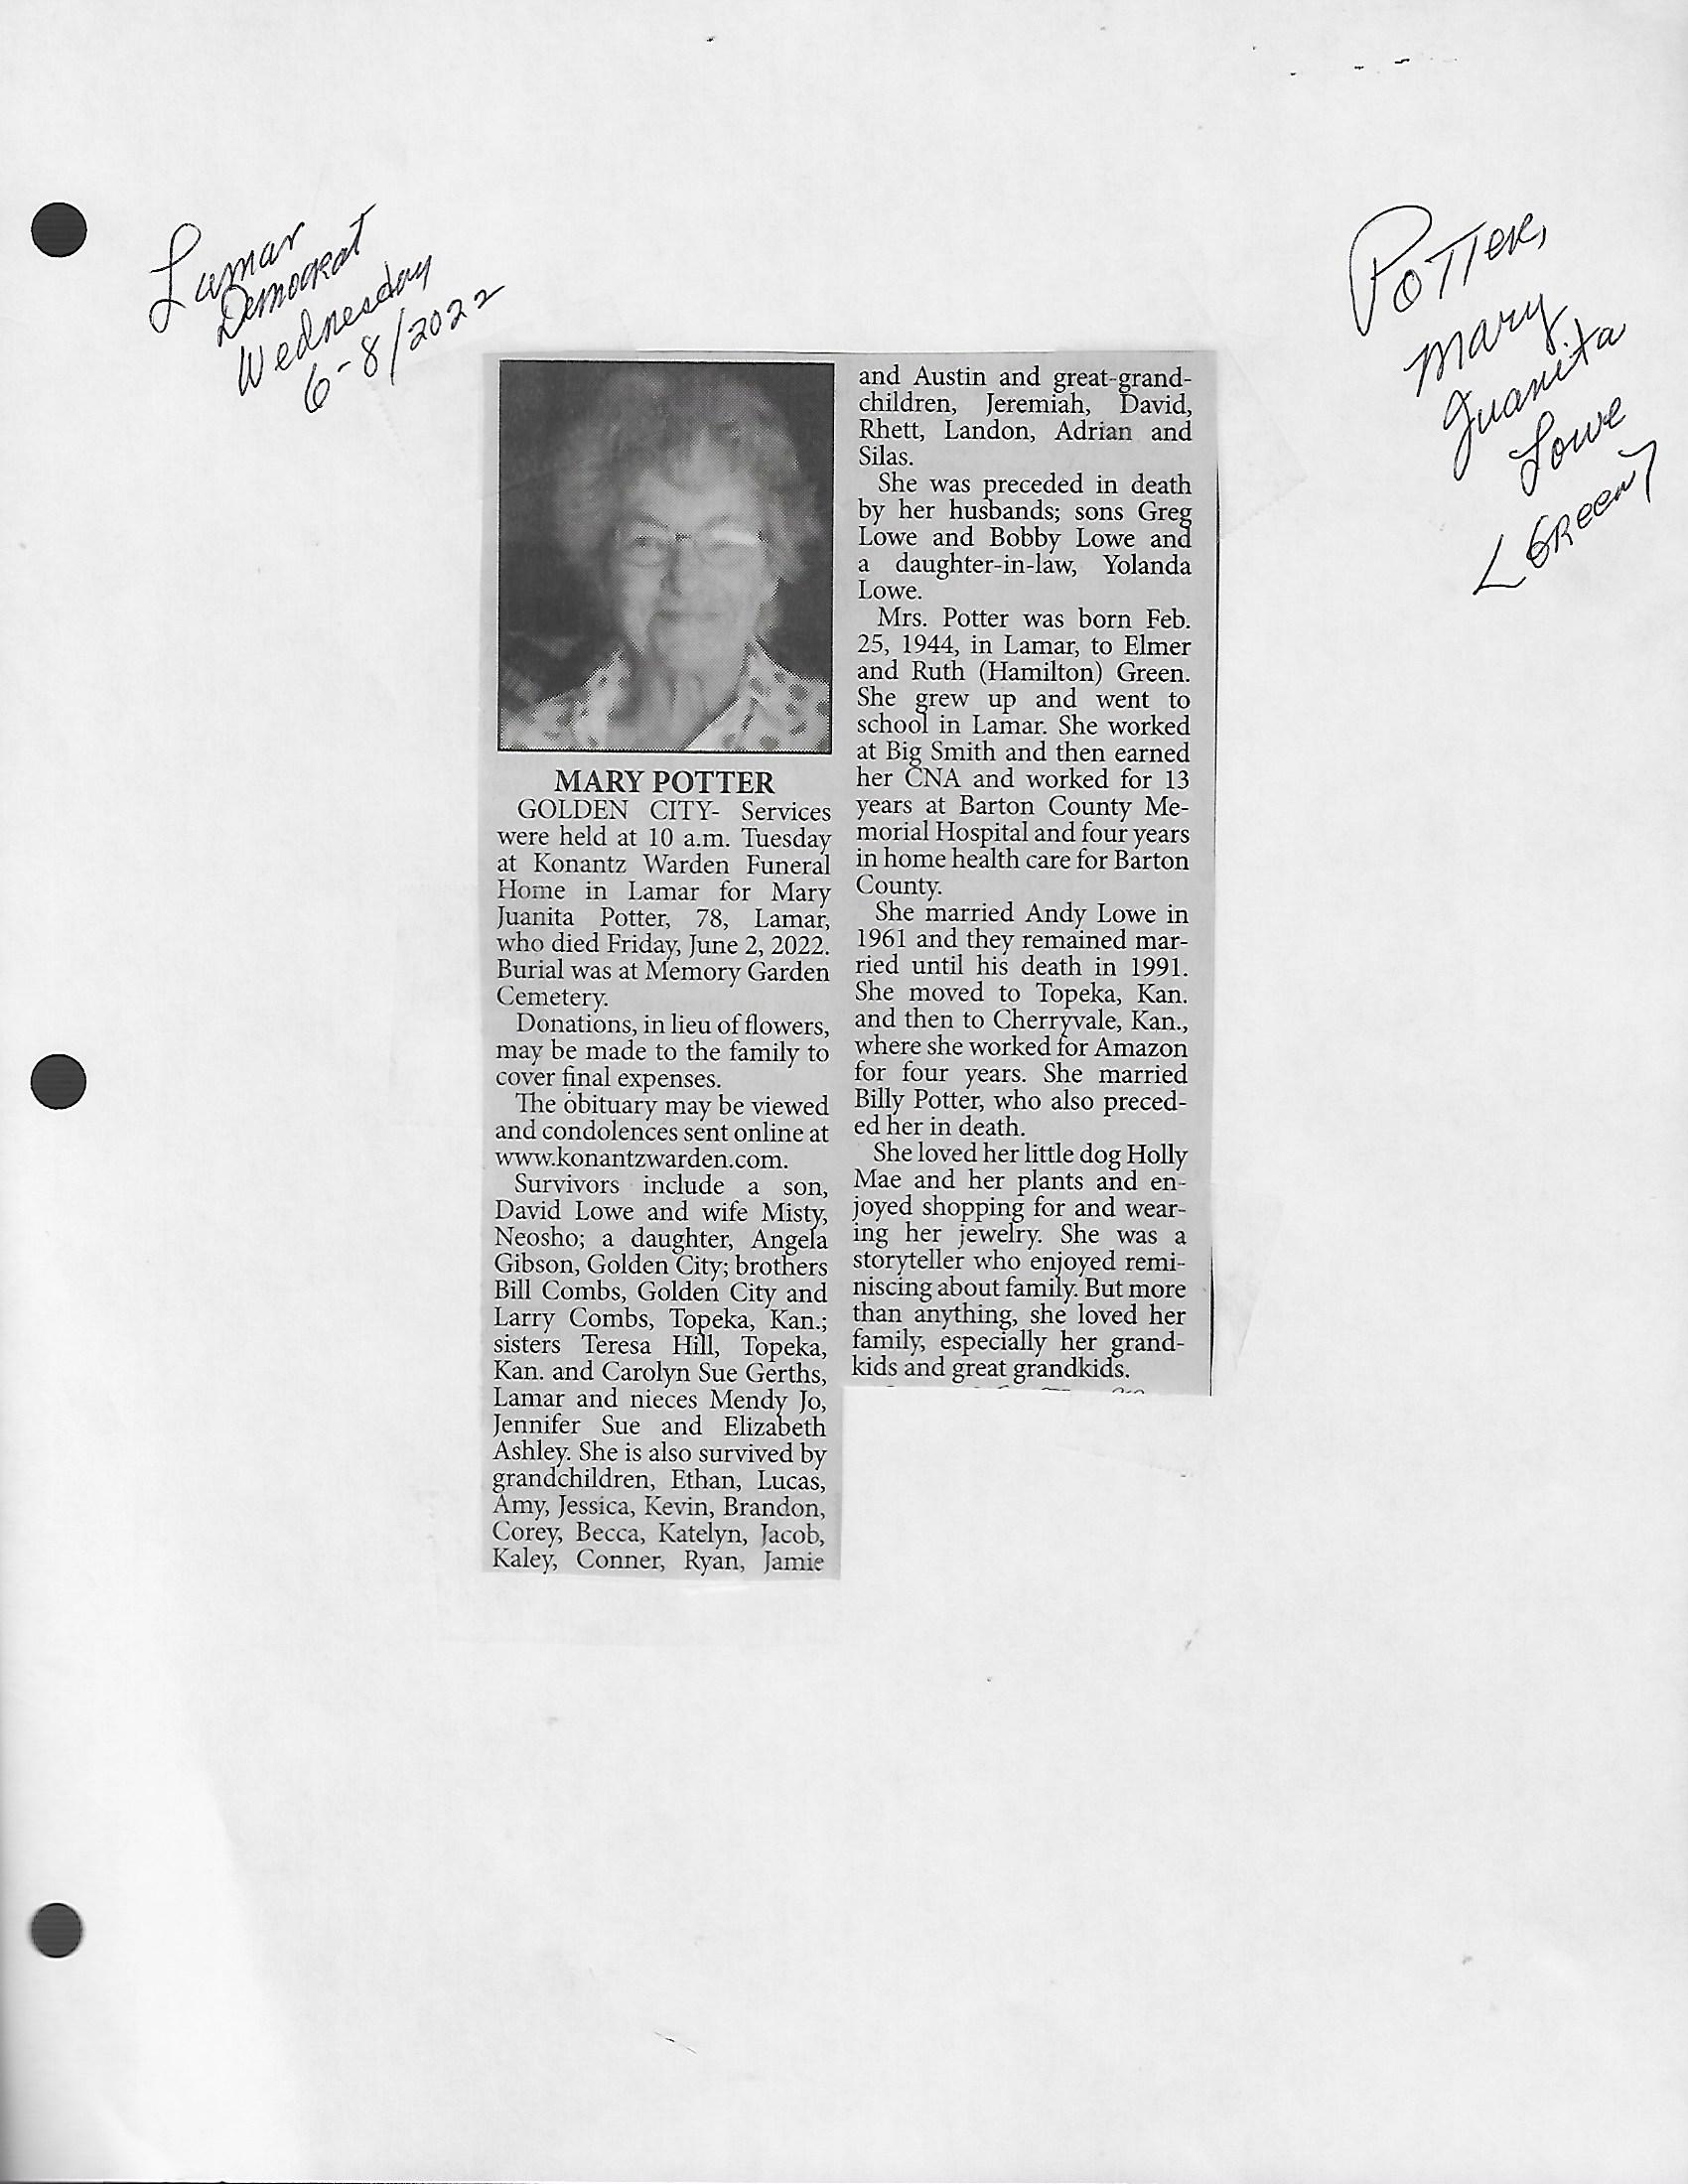 Lamar
Democrat
Wednesday
6-8/2022
Potter,
Mary
Juanita
Lowe
<Green>
MARY POTTER
GOLDEN CITY- Services
were held at 10 a.m. Tuesday
at Konantz Warden Funeral
Home in Lamar for Mary
Juanita Potter, 78, Lamar,
who died Friday, June 2, 2022.
Burial was at Memory Garden
Cemetery.
Donations, in lieu of flowers,
may be made to the family to
cover final expenses.
The obituary may be viewed
and condolences sent online at
www.konantzwarden.com.
Survivors include a son,
David Lowe and wife Misty,
Neosho; a daughter, Angela
Gibson, Golden City; brothers
Bill Combs, Golden City and
Larry Combs, Topeka, Kan.;
sisters Teresa Hill, Topeka,
Kan. and Carolyn Sue Gerths,
Lamar and nieces Mendy Jo,
Jennifer Sue and Elizabeth
Ashley. She is also survived by
grandchildren, Ethan, Lucas,
Amy, Jessica, Kevin, Brandon,
Corey, Becca, Katelyn, Jacob,
Kaley, Conner, Ryan, Jamie
and Austin and great-grand-
children, Jeremiah, David,
Rhett, Landon, Adrian and
Silas.
She was preceded in death
by her husbands; sons Greg
Lowe and Bobby Lowe and
a daughter-in-law, Yolanda
Lowe.
Mrs. Potter was born Feb.
25, 1944, in Lamar, to Elmer
and Ruth (Hamilton) Green.
She grew up and went to
school in Lamar. She worked
at Big Smith and then earned
her CNA and worked for 13
years at Barton County Me-
morial Hospital and four years
in home health care for Barton
County.
She married Andy Lowe in
1961 and they remained mar-
ried until his death in 1991.
She moved to Topeka, Kan.
and then to Cherryvale, Kan.,
where she worked for Amazon
for four years. She married
Billy Potter, who also preced-
ed her in death.
She loved her little dog Holly
Mae and her plants and en-
joyed shopping for and wear-
ing her jewelry. She was a
storyteller who enjoyed remi-
niscing about family. But more
than anything, she loved her
family, especially her grand-
kids and great grandkids.